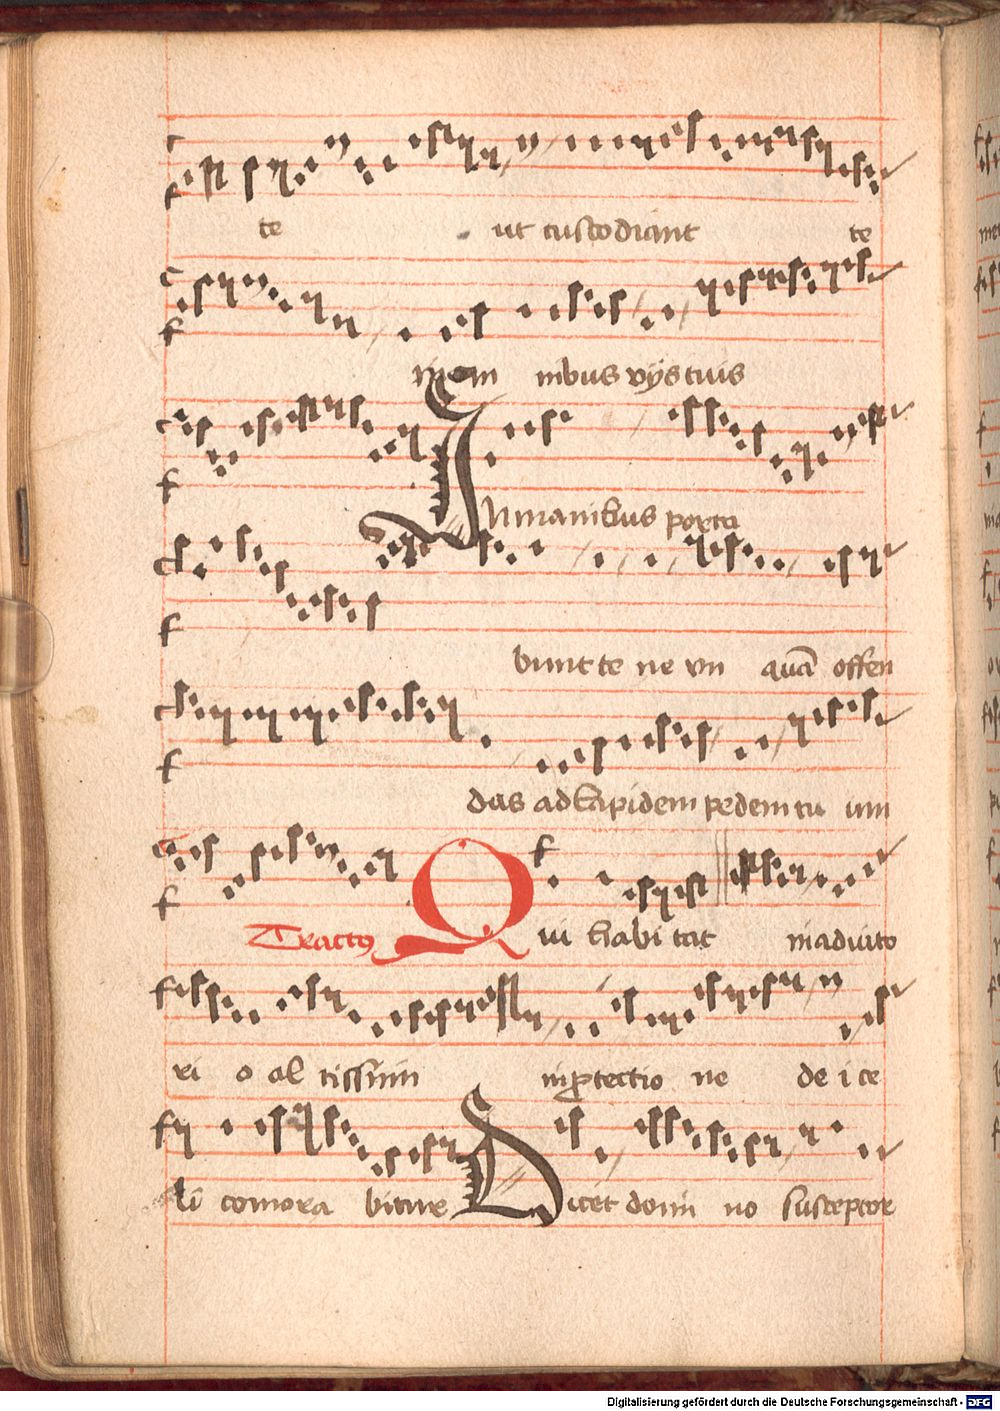 te ut custodiant te
in om nibus vijs tuis
In manibus porta
bunt te ne vn quā offen
das ad lapidem pedem tu um
Tractus Qui habi tat in adiuto
ri o al tissimi in ꝓtectio ne de i ce
li comora bitur Dicet domi no susceptor
Digitalisierung gefördert durch die Deutsche Forschungsgemeinschaft - DFG